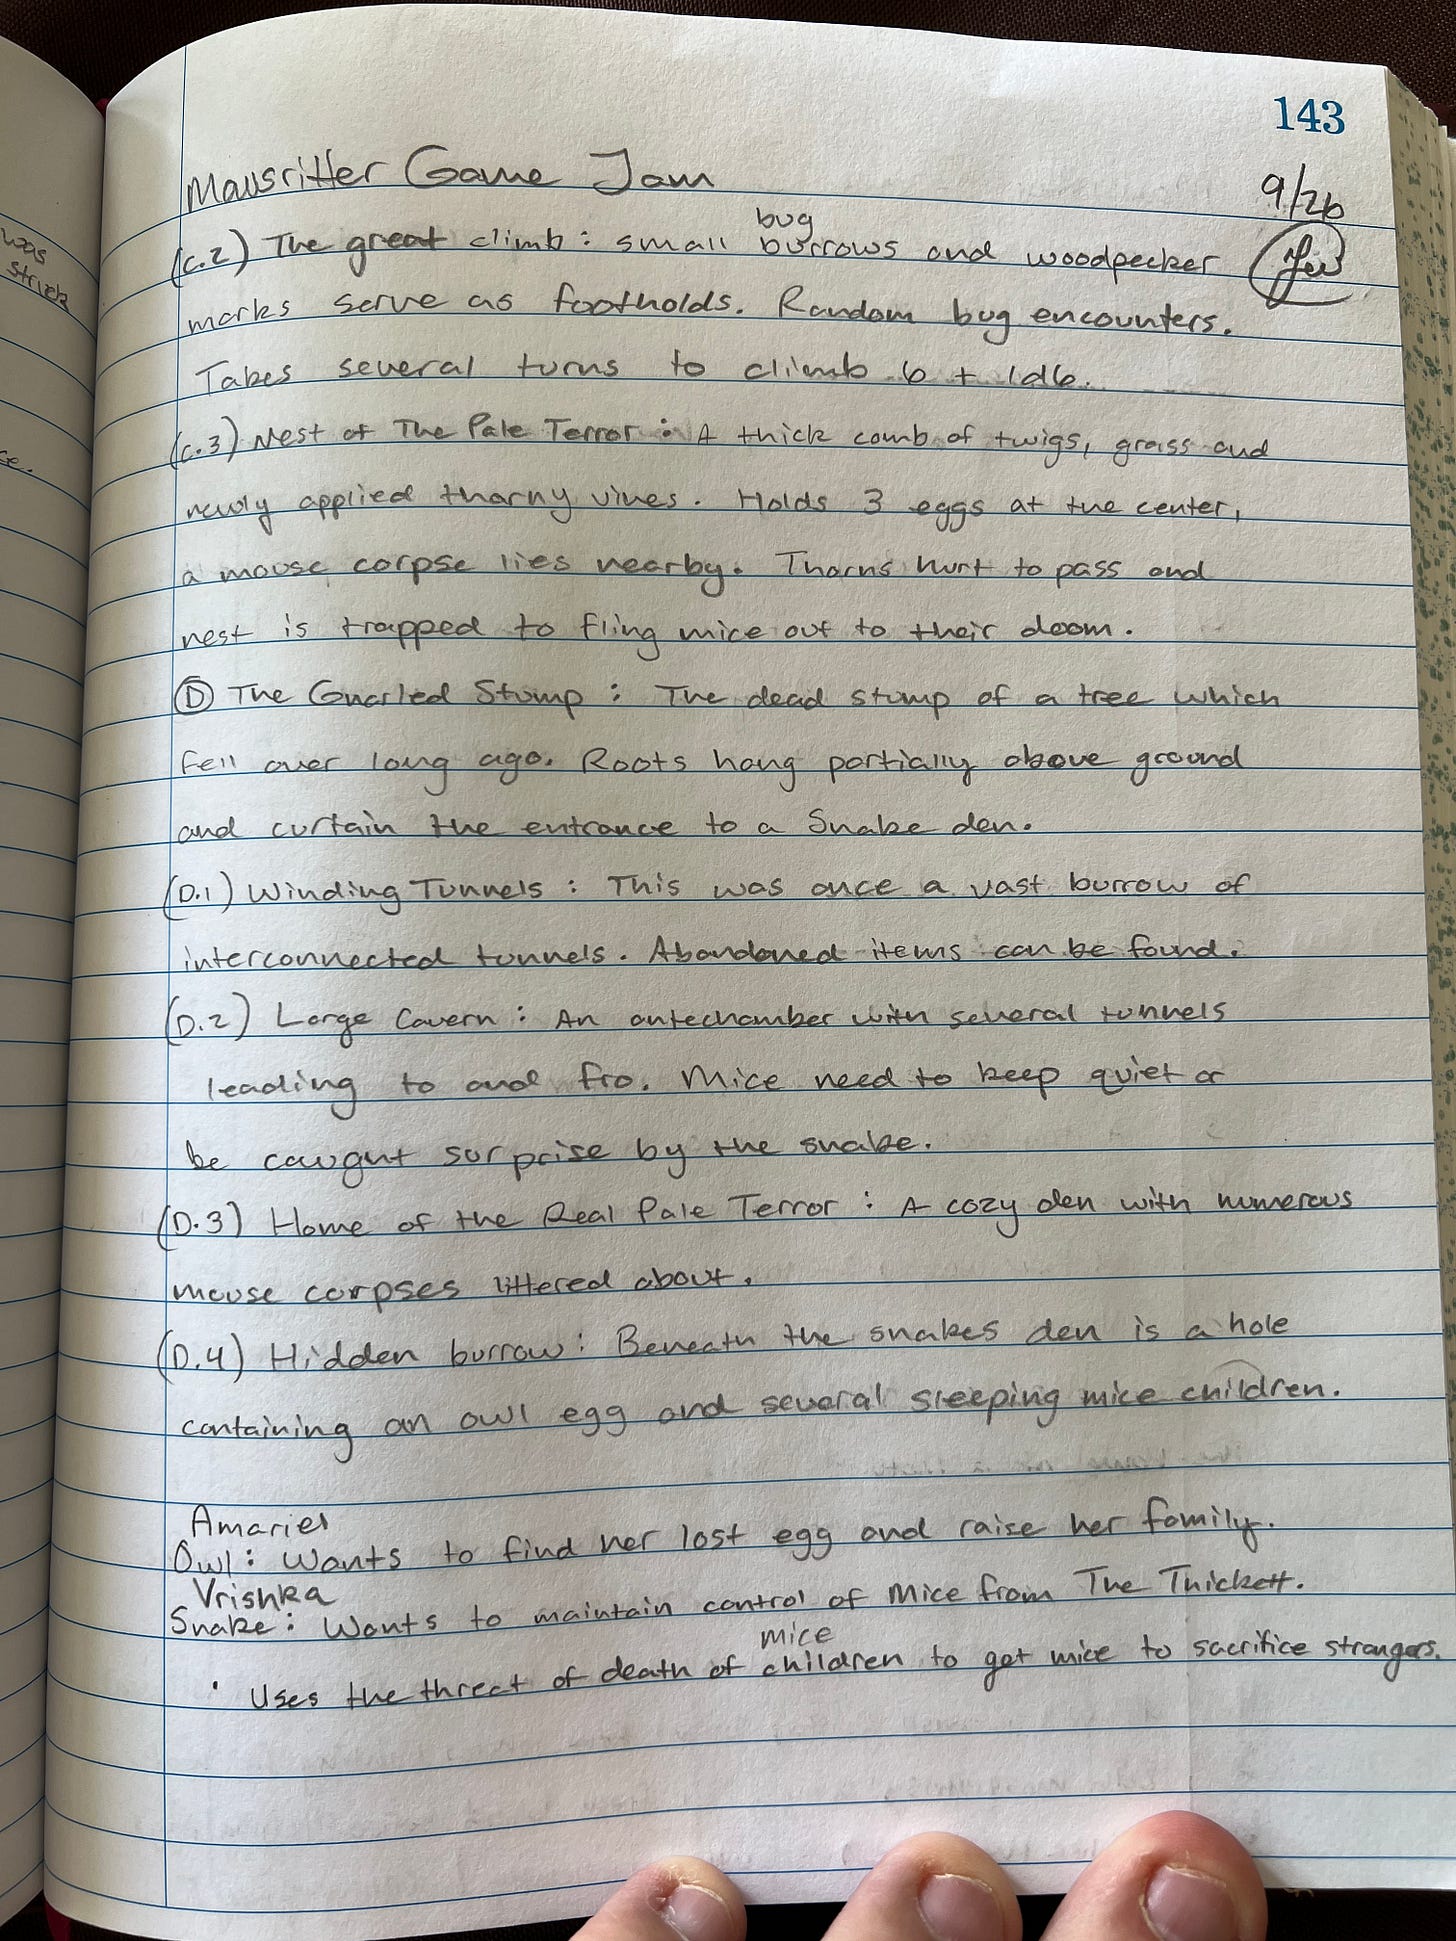 143
Mausritter Game Jam
9/26
bug
(C.2) The great climb : small burrows and woodpecker
marks serve as footholds. Random bug encounters.
Takes several turns to climb 6 + 1d6.
(C.3) Nest of The Pale Terror : A thick comb of twigs, grass and
newly applied thorny vines. Holds 3 eggs at the center,
a mouse corpse lies nearby. Thorns hurt to pass and
nest is trapped to fling mice out to their doom.
(D) The Gnarled Stump : The dead stump of a tree which
fell over long ago. Roots hang partially above ground
and curtain the entrance to a Snake den.
(D.1) Winding Tunnels : This was once a vast burrow of
interconnected tunnels. Abandoned items can be found.
(D.2) Large Cavern : An antechamber with several tunnels
leading to and fro. Mice need to keep quiet or
be caught surprise by the snake.
(D.3) Home of the Real Pale Terror : A cozy den with numerous
mouse corpses littered about.
(D.4) Hidden burrow : Beneath the snakes den is a hole
containing an owl egg and several sleeping mice children.
Amariel
Owl : Wants to find her lost egg and raise her family.
Vrishka
Snake : Wants to maintain control of Mice from The Thickett.
mice
• Uses the threat of death of children to get mice to sacrifice strangers.
was
strick